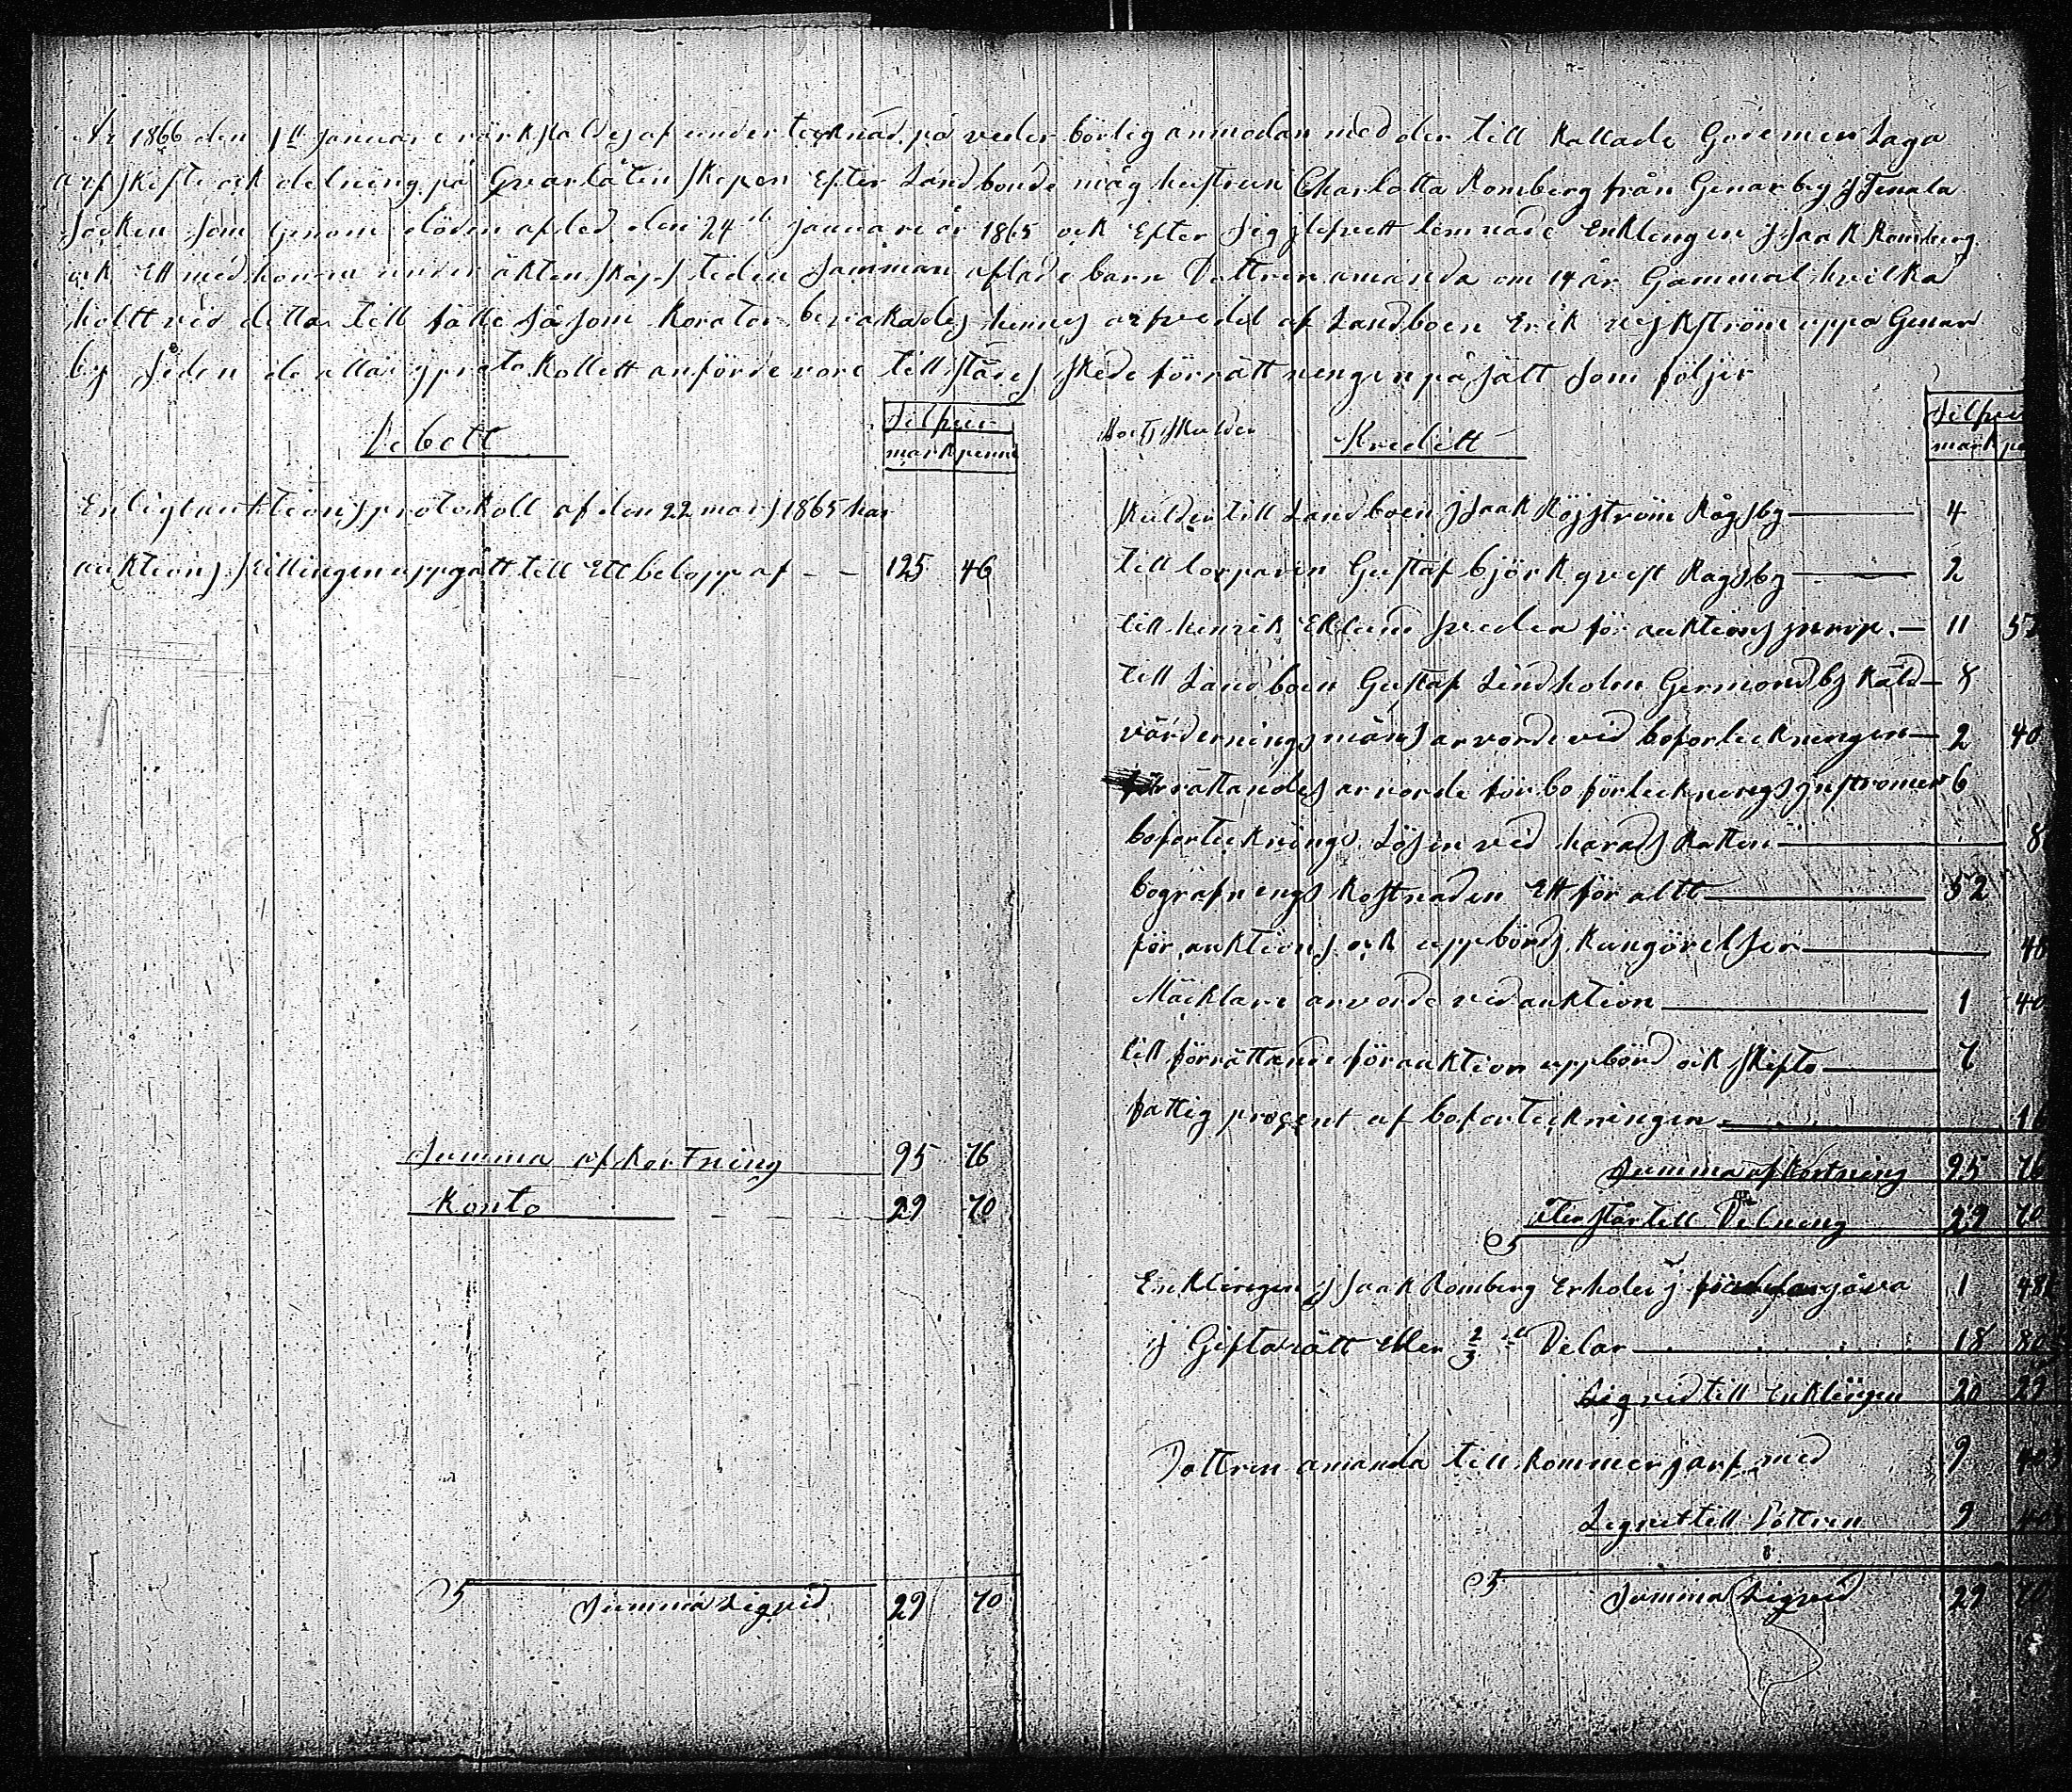 År 1866 den 1st Januari värkstaldes af undertecknad på vederbörlig anmodan med der till kallade Godemen Laga
arfskifte ock delning på Qvarlåtenskapen Efter Landbonde måg hustrun Charlotta Romberg från Genarby j Tenala
Socken som Genom döden afled den 24de januari år 1865 ock Efter Sig lemnade Enklingen jsaak Romberg
ock Ett med honom under äktenskaps tiden Samman aflade barn Dottren amanda om 14 år Gammal hvilka
vid detta till fälle såsom Korator bevakades hennes arfvedel af Landboen Erik uppå Genar
by Seden de alla j protokollett anförde vore till städes skede förrättningen på sätt som följer
Debett
Silfver
mark penni
Enligt auktions protokoll af den 22 mars 1865 har
auktions skillingen uppgått till Ett belopp af - - 125 46
Summa afkortning 95 76
Konto 29 70
Summa Ligvid 29 70
Skulder
Kreditt
Silfver
mark
Skulder till Landboen jsaak Röjström Rågsby 4
till torparen Gustaf björkqvist Rågsby 2
till henrik Eklund för auktions 11
till Landboen Gustaf Lindholm Germundby 8
värderings mäns arvorde vid boforteckningen 2 40
förrättandes arvorde för bo förteckningsjnstroment 6
bofortecknings Lösen vid härads Rätten 8
begrafnings kostnaden Ett för altt 52
för auktions ock uppbörds kungörelser
Mäcklare arvorde vid auktion 1 40
till förrättande för auktion uppbörd ock skifto
fattig procent af boforteckningen
Summa afkortning 95 76
återstår till Delning 29 70
Enklingen jsaak Romberg Erholer j 1
j Giftorätt Eller 2/3 Delar 18 80
Ligvid till Enklingen 20 29
Dottren amanda till kommer j arf med 9
Ligvid till Dottren 9
Summa Ligvid 29 70